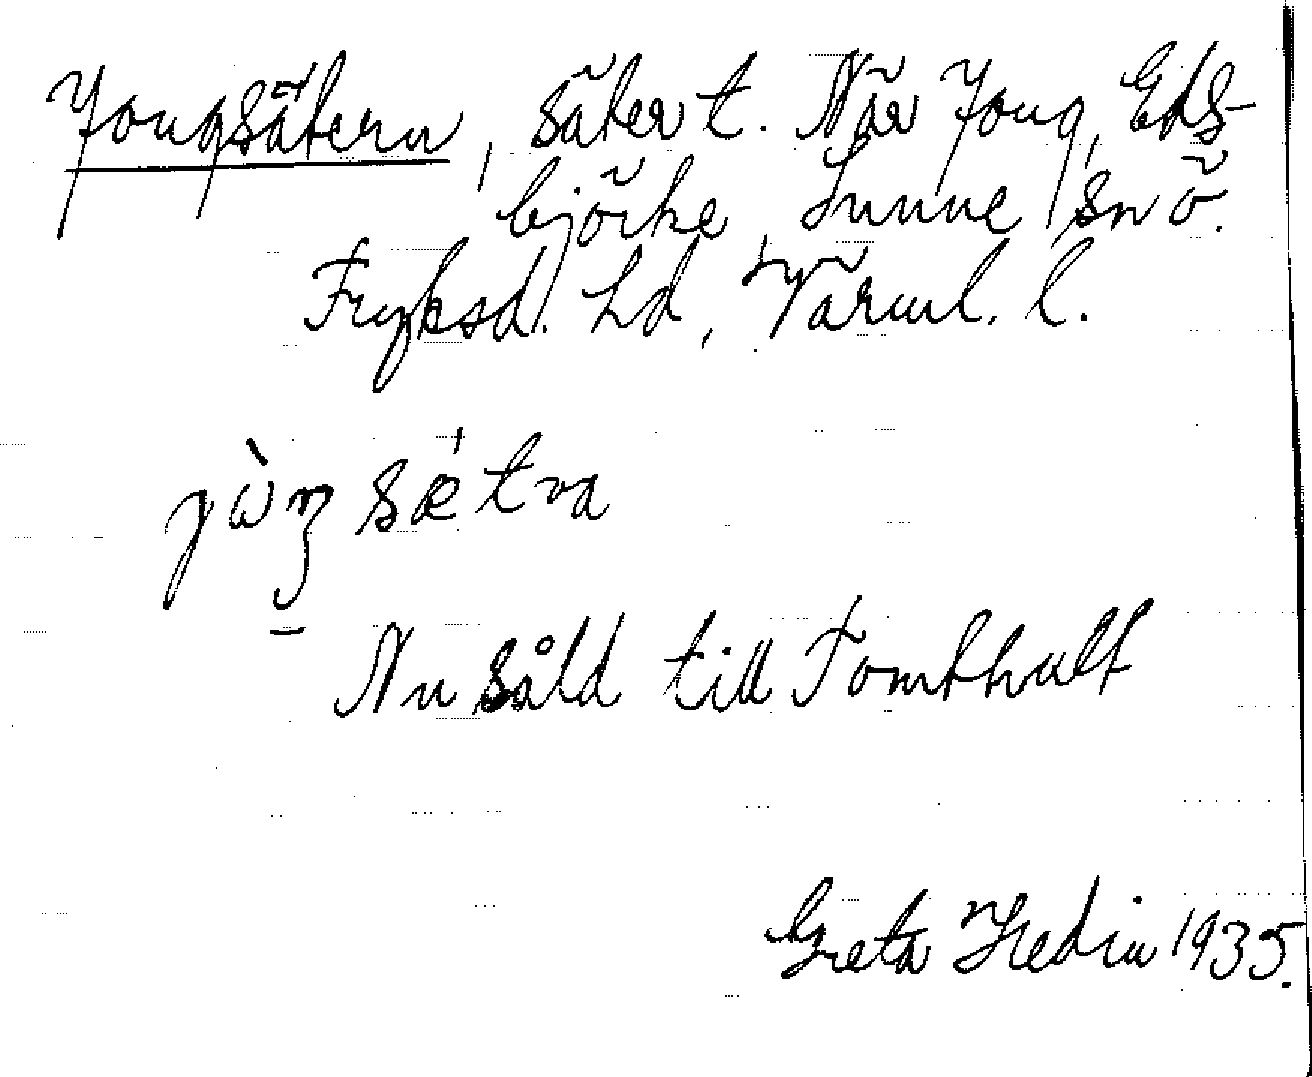 Jonqsätern, säter t. När Jonq, Eds-
björke, Sunne, sn ö.
Fryksd. hd, Värml. l.
sǽtra
Nu såld till Tomthult
Greta Hedin 1935.